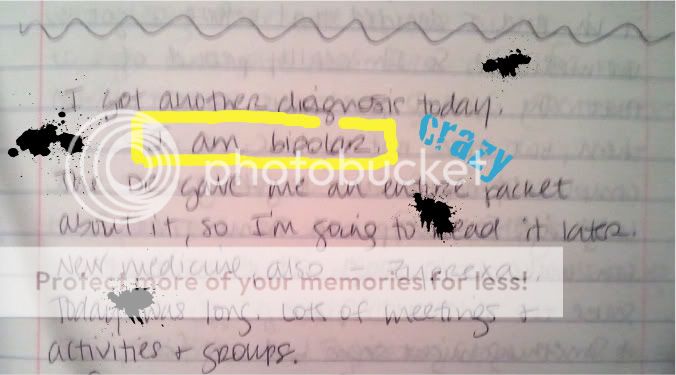 I got another diagnosis today.
I am bipolar.
crazy
photobucket
The Dr gave me an entire packet
about it, so I'm going to read it later.
New medicine, also - Zyprexa.
Protect more of your memories for less!
Today was long. Lots of meetings +
activities + groups.